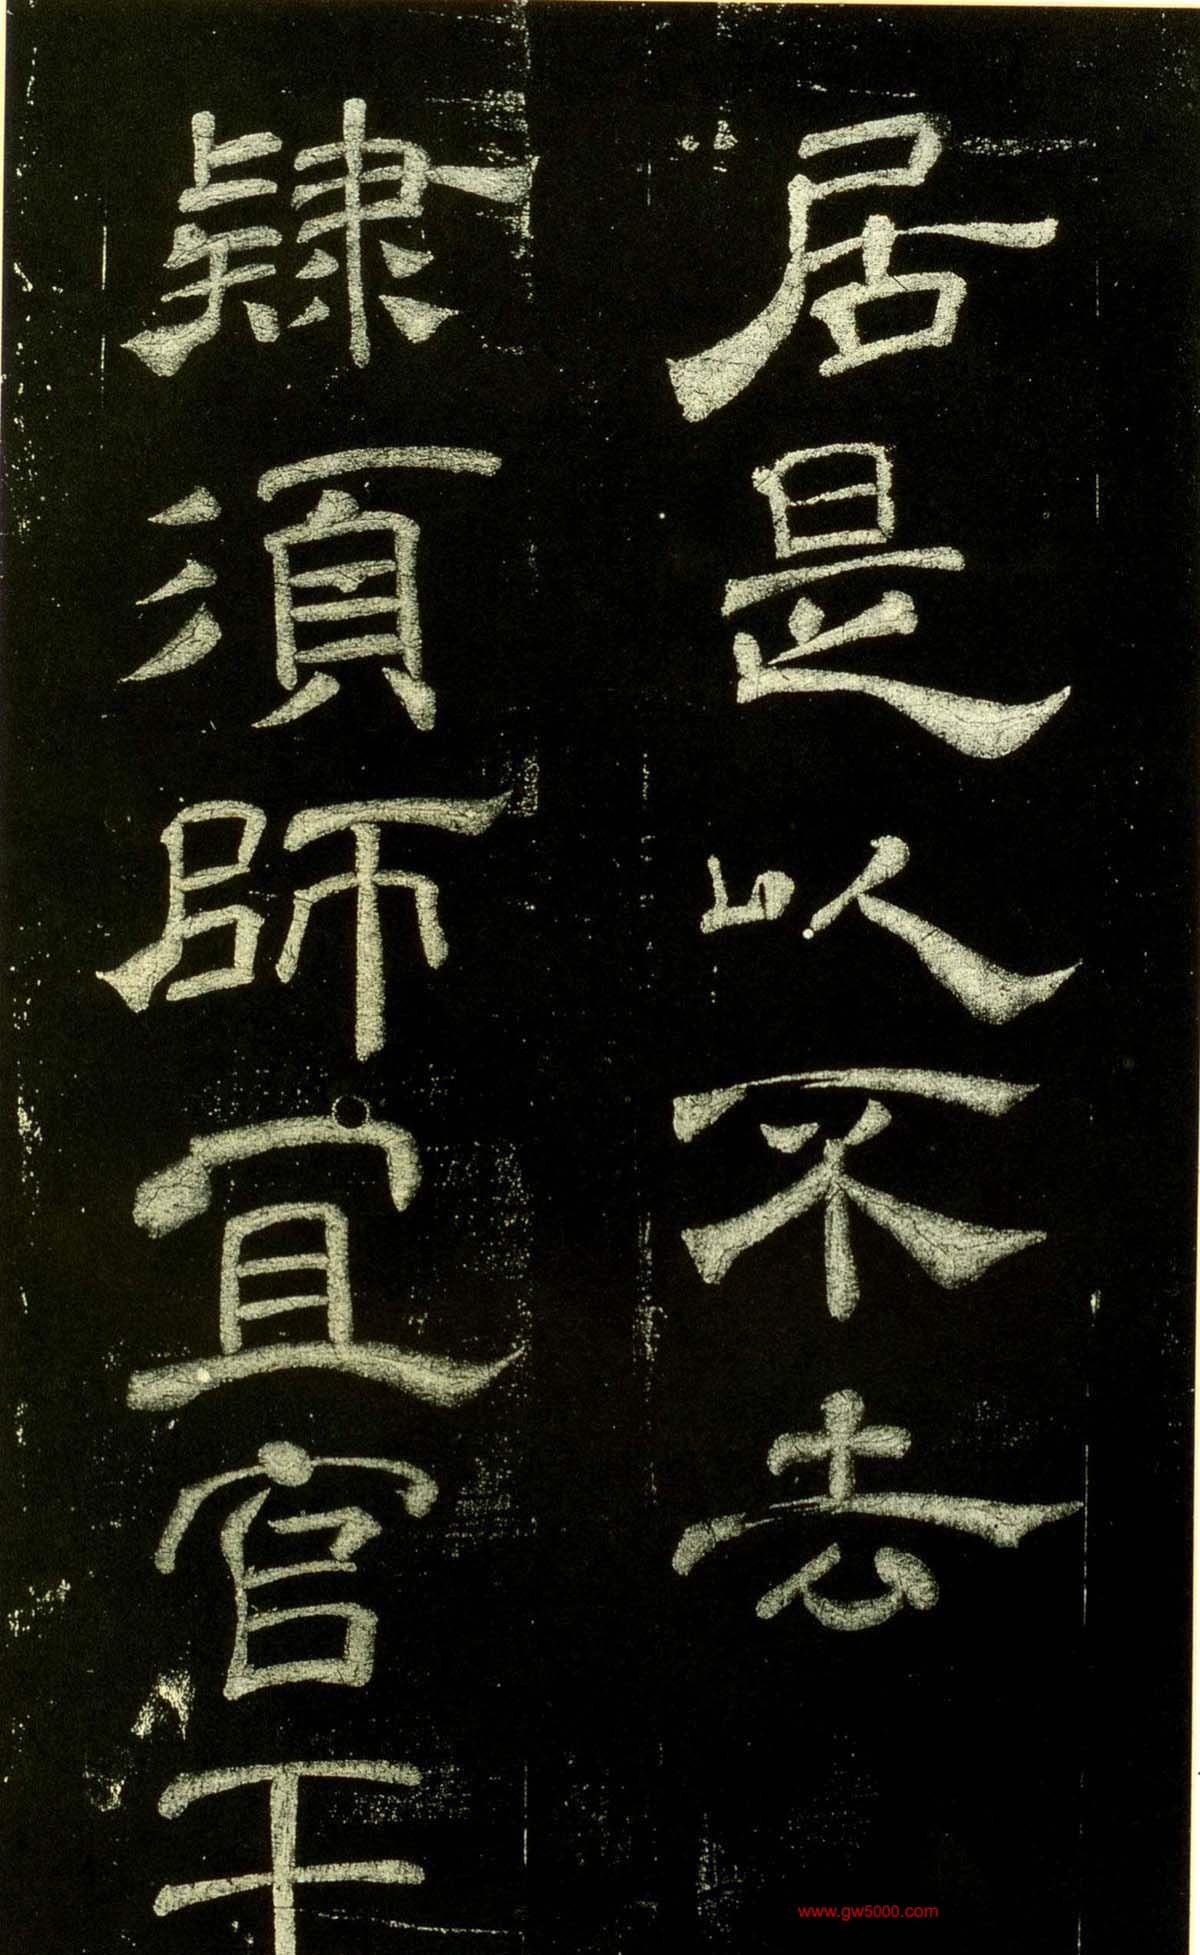 居是以不去
隸須師宜官
www.gw5000.com